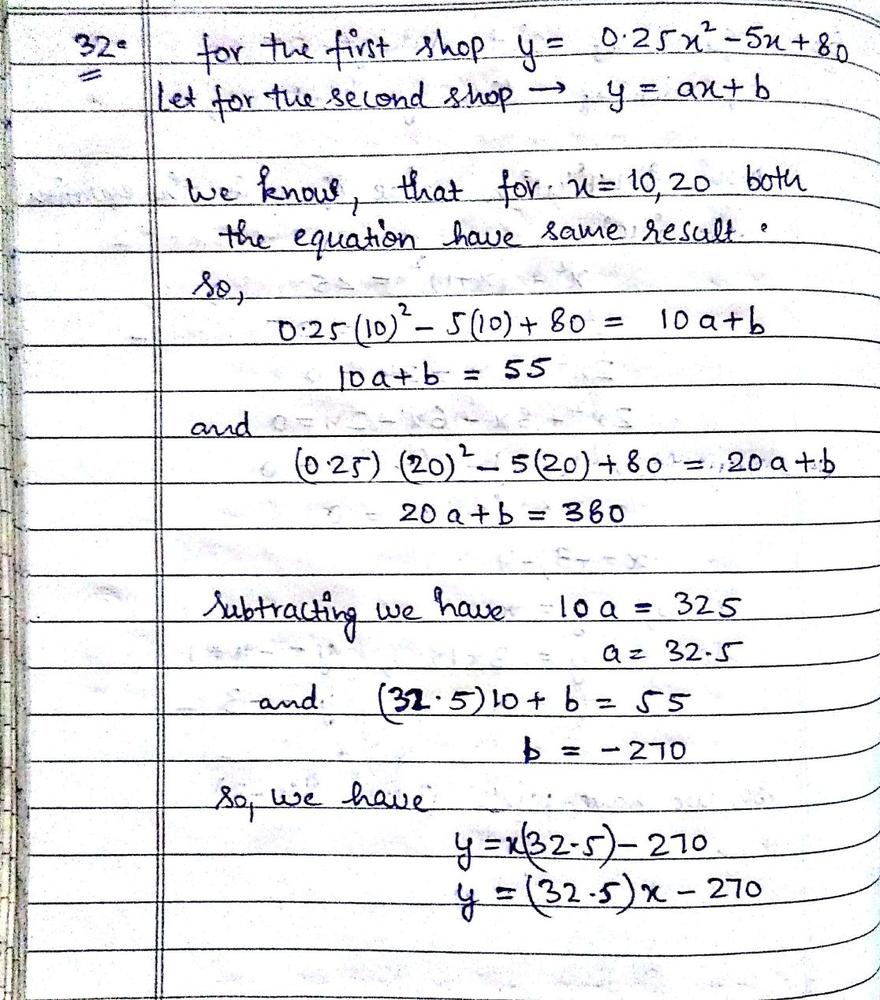 32. for the first shop y = 0.25x² - 5x + 80
Let for the second shop → y = ax + b
We know, that for x = 10, 20 both
the equation have same result.
So,
0.25(10)² - 5(10) + 80 = 10a + b
10a + b = 55
and
(0.25) (20)² - 5(20) + 80 = 20a + b
20a + b = 380
Subtracting we have 10a = 325
a = 32.5
and (32.5)10 + b = 55
b = -270
So, we have
y = x(32.5) - 270
y = (32.5)x - 270